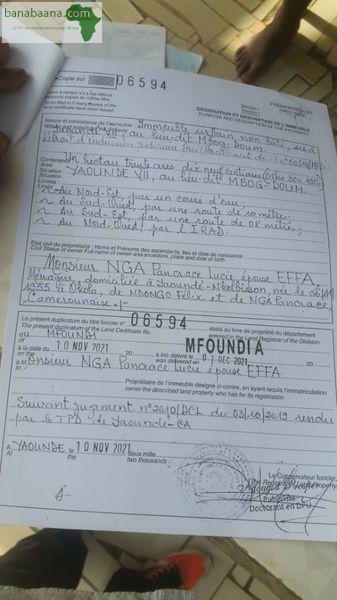 banabaana.com
Copie sur 06594
Section I
Section I
PREMIERE PARTIE
FIRST PART
DESIGNATION ET DESCRIPTION DE L'IMMEUBLE
PURPOSE AND DESCRIPTION OF THE PROPERTY
Nature et consistance de l'immeuble Immeuble urbain non bâti, sis à
YAOUNDE VII, au lieu-dit Mbog-Doum.
Contenance Un hectare trente ares dix neuf centiares
Area
Situation YAOUNDE VII, au lieu-dit MBOG-DOUM.
Situation
Limites
Limits
~ Au Nord-Est, par un cours d'eau;
~ Au Sud-Ouest, par une route de 10 mètres;
~ Au Sud-Est, par une route de 08 mètres;
~ Au Nord-Ouest, par l'IRAD.
Etat civil du propriétaire : Noms et Prénoms des ascendants, lieu et date de naissance
Civil Status of owner Full name of owner and ancestors, place and date of birth
Monsieur NGA Pancrace Lucie épouse EFFA,
Ménagère, domiciliée à Yaoundé-Nkolbisson, née le 06/11/
1955 à Okola, de NDONGO Félix et de NGA Pancrace,
Camerounaise.
Le présent duplicatum du titre foncier n° 06594 établi au livre de propriété du département
The present duplicatum of the Land Certificate No. entered in the Land Registration of the Division
du MFOUNDI MFOUNDI A
of
à la date du 10 NOV 2021 20 , a été délivré le 01 DEC 2021 20
on the was delivered on
à Monsieur NGA Pancrace Lucie épouse EFFA
to M
Propriétaire de l'immeuble désigné ci-contre, en ayant requis l'immatriculation
owner the described land property who has for its registration
Suivant jugement n° 2010/DCL du 03/10/2019 rendu
par le TPD de Yaoundé-CA
A YAOUNDE, le 10 NOV 2021 deux mille
At the two thousand,
Le Conservateur foncier,
Doctorant en DPU